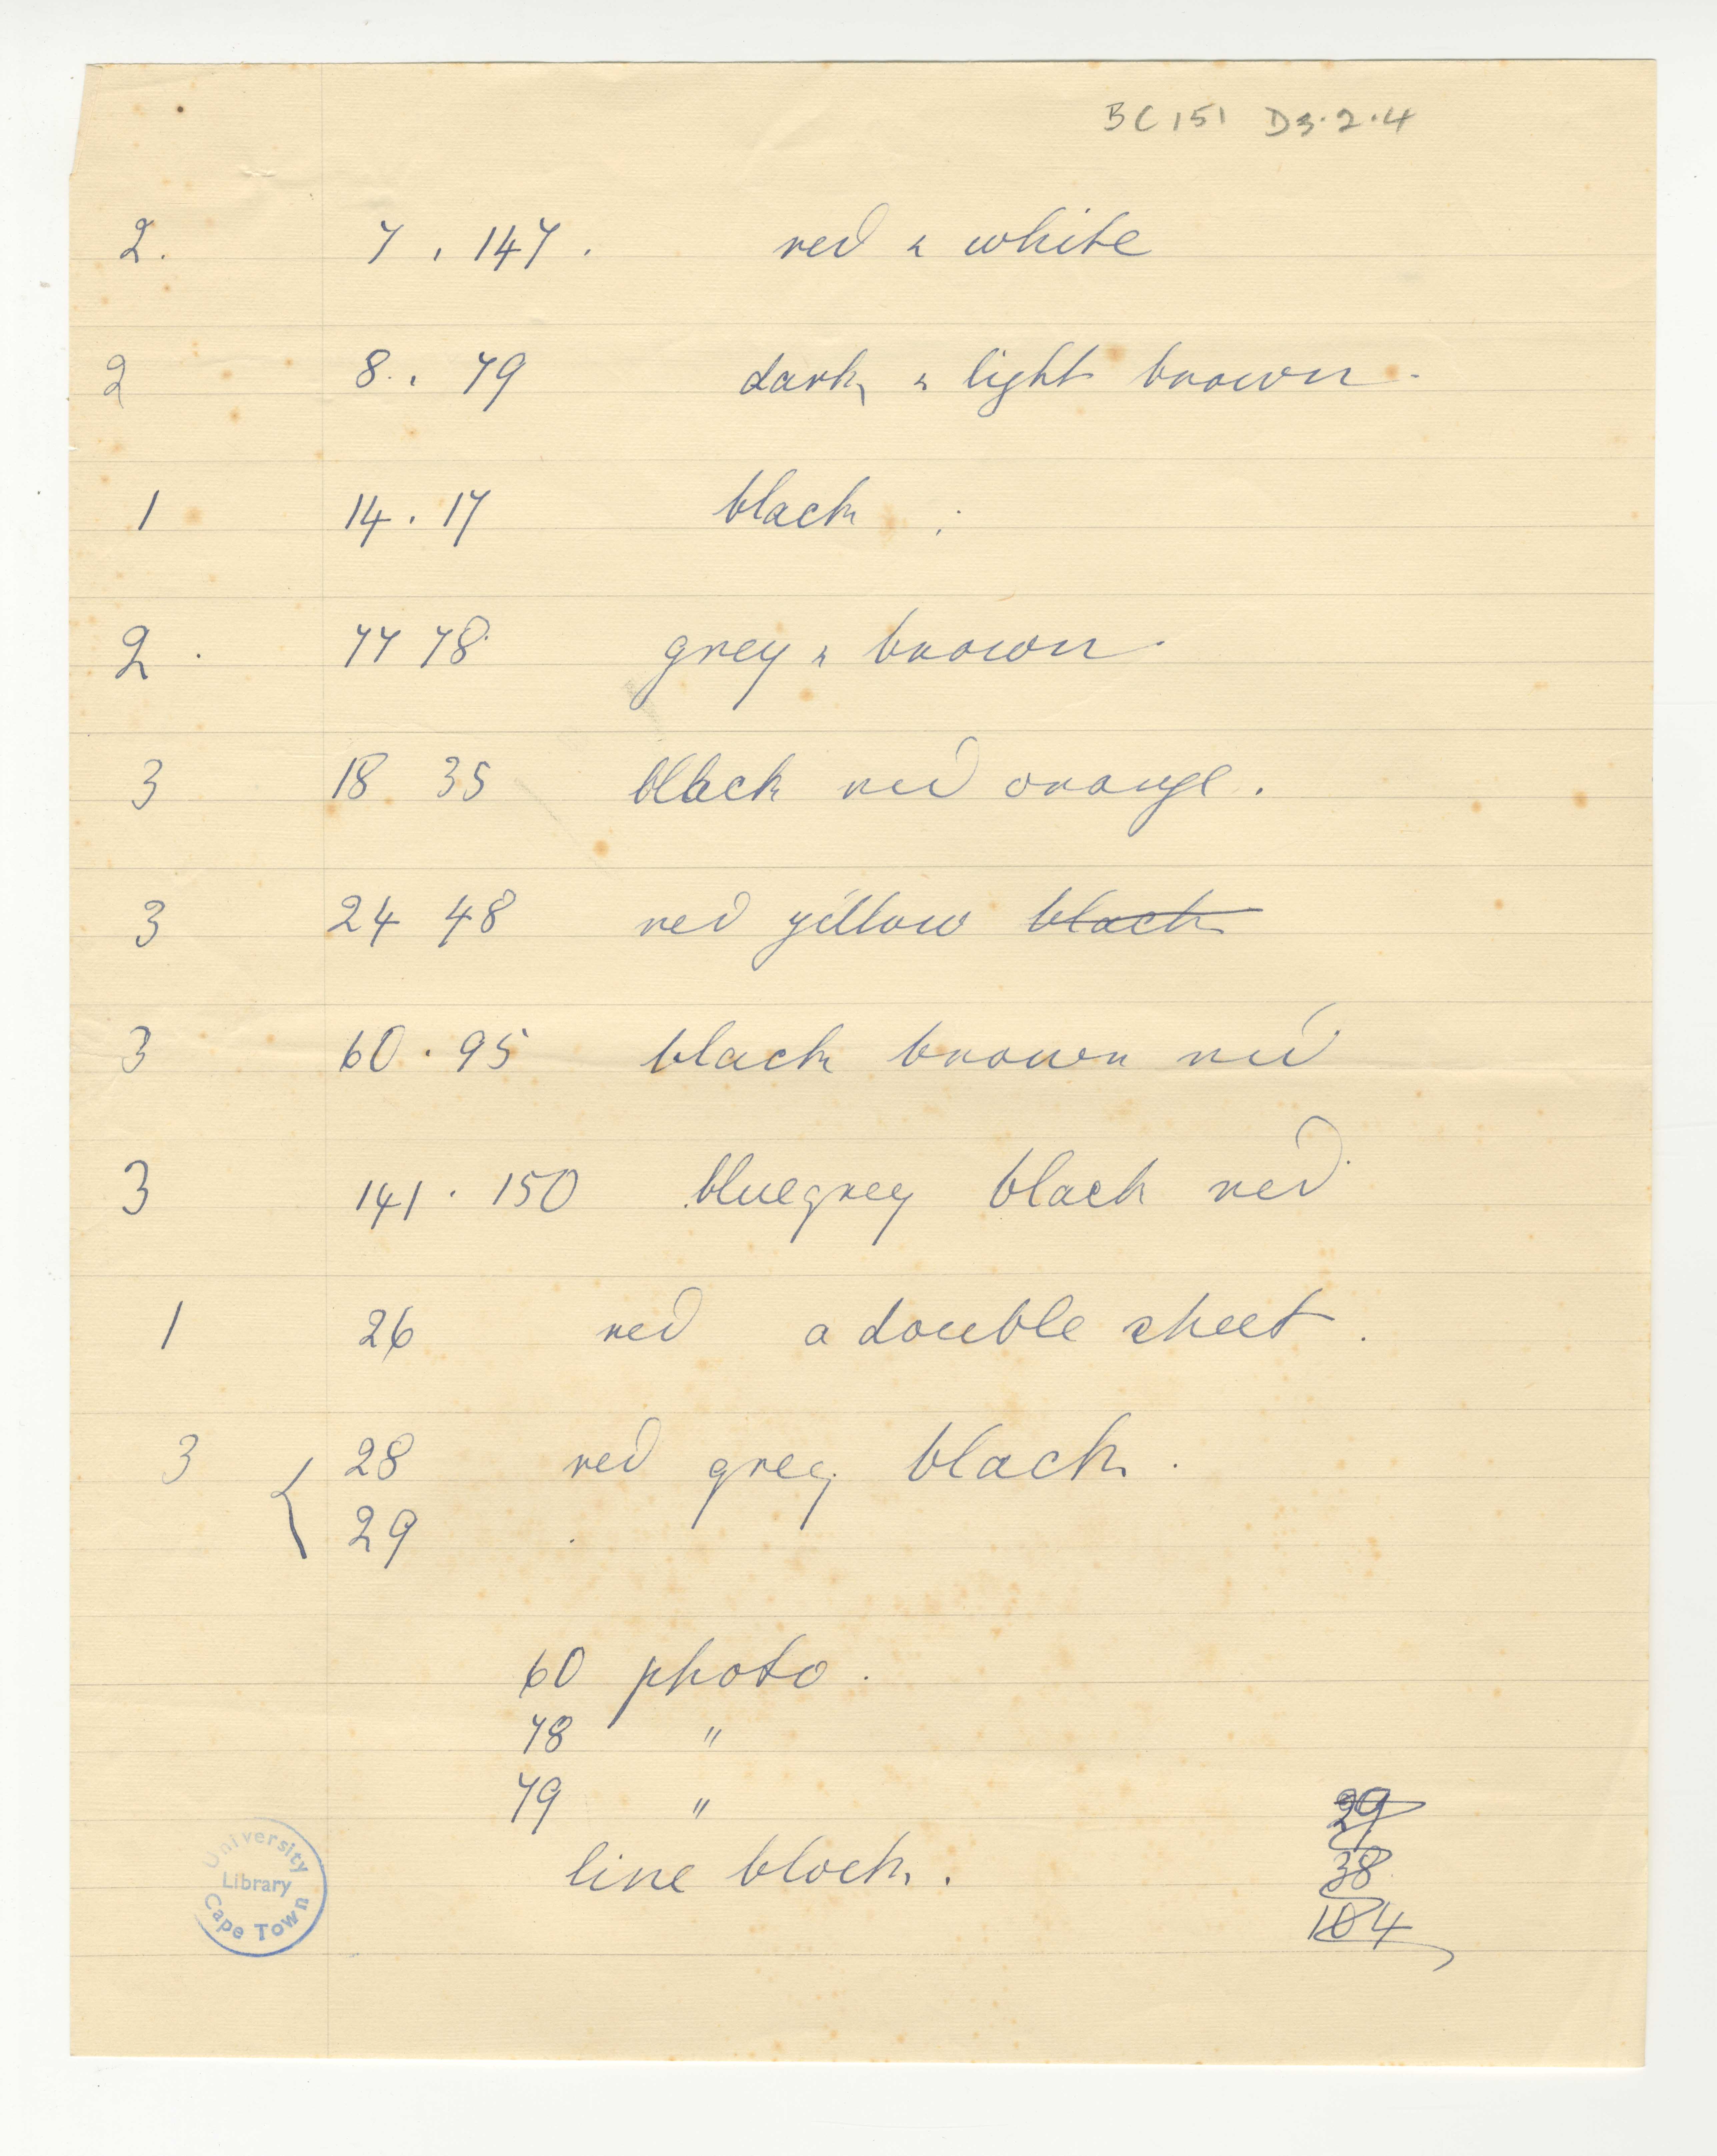 BC 151 D3.2.4
2. 7 . 147 . red & white
2 8 . 79 dark & light brown .
1 14 . 17 black .
2 . 77 78 grey & brown .
3 18 35 black red orange .
3 24 48 red yellow black
3 60 . 95 black brown red
3 141 . 150 bluegrey black red .
1 26 red a double sheet .
3 { 28 red grey black .
29
60 photo .
78 "
79 "
line block .
29
38
104
University
Library
Cape Town